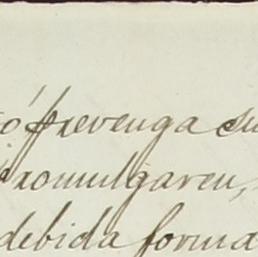 ó prevenga su
promulgaren,
debida forma